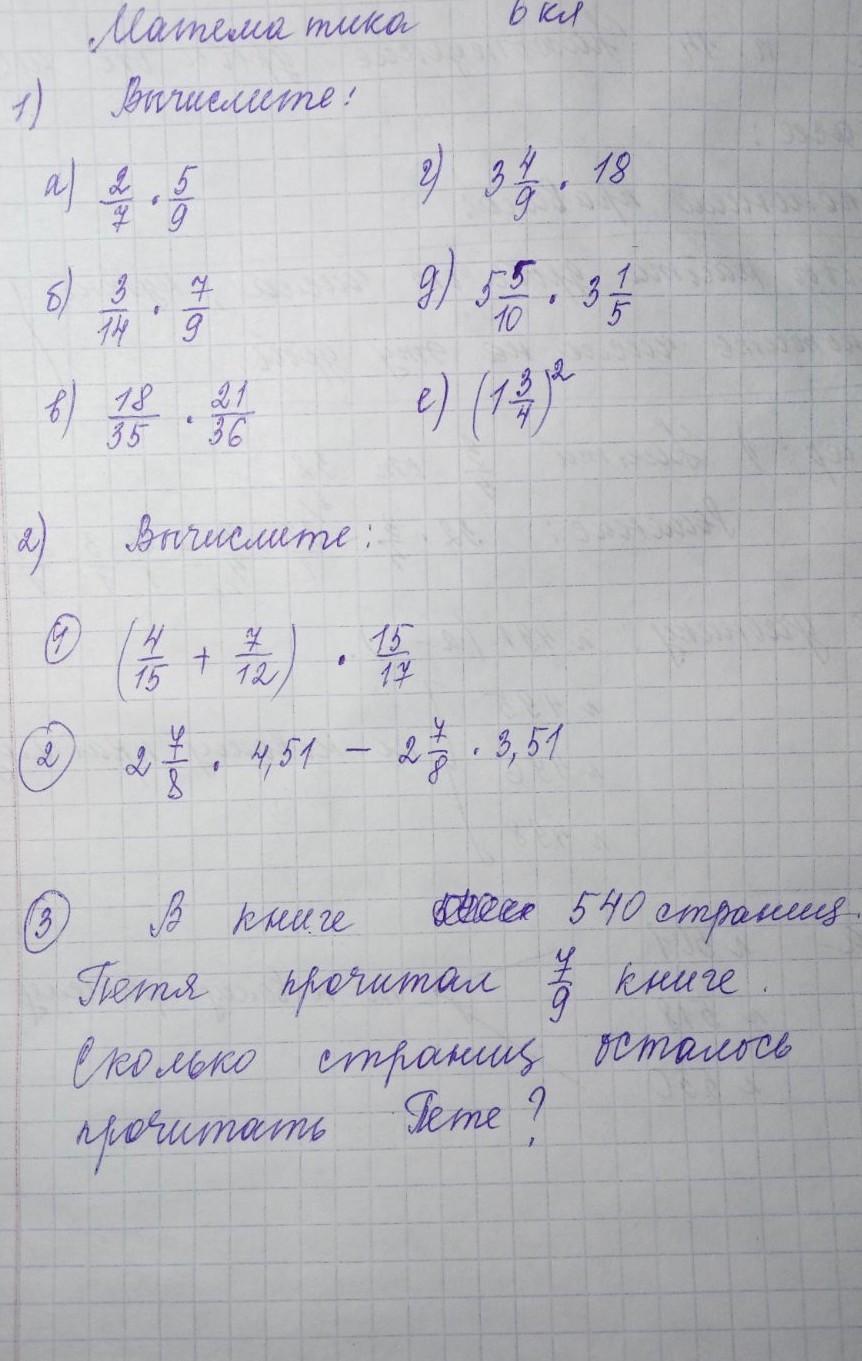 Математика 6 кл
1) Вычислите:
а) 2/7 · 5/9
г) 3 4/9 · 18
б) 3/14 · 7/9
д) 5 5/10 · 3 1/5
в) 18/35 · 21/36
е) (1 3/4)²
2) Вычислите:
1 (4/15 + 7/12) · 15/17
2 2 7/8 · 4,51 − 2 7/8 · 3,51
3 В книге 540 страниц.
Петя прочитал 7/9 книге.
Сколько страниц осталось
прочитать Пете?